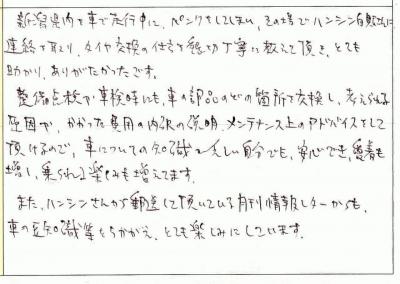 新潟県内を車で走行中に、パンクをしてしまい、その場でハンシン自動車に
連絡を取り、タイヤ交換の仕方を懇切丁寧に教えて頂き、とても
助かり、ありがたかったです。
整備点検や車検時にも、車の部品のどの箇所を交換し、考えられる
原因や、かかった費用の内訳の説明、メンテナンス上のアドバイスをして
頂けるので、車についての知識が乏しい自分でも、安心でき、愛着も
増し、乗られる楽しみも増えてます。
また、ハンシンさんから郵送して頂いている月刊情報レターからも、
車の豆知識等もうかがえ、とても楽しみにしています。